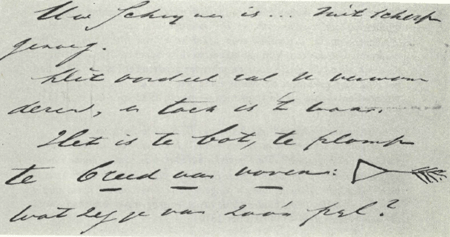 Uw is... niet scherp
genoeg.
Dit oordeel zal U verwon
deren, en toch is 't waar.
Het is te bot, te plomp
te breed van voren:
wat zeg je van zoo'n pyl?